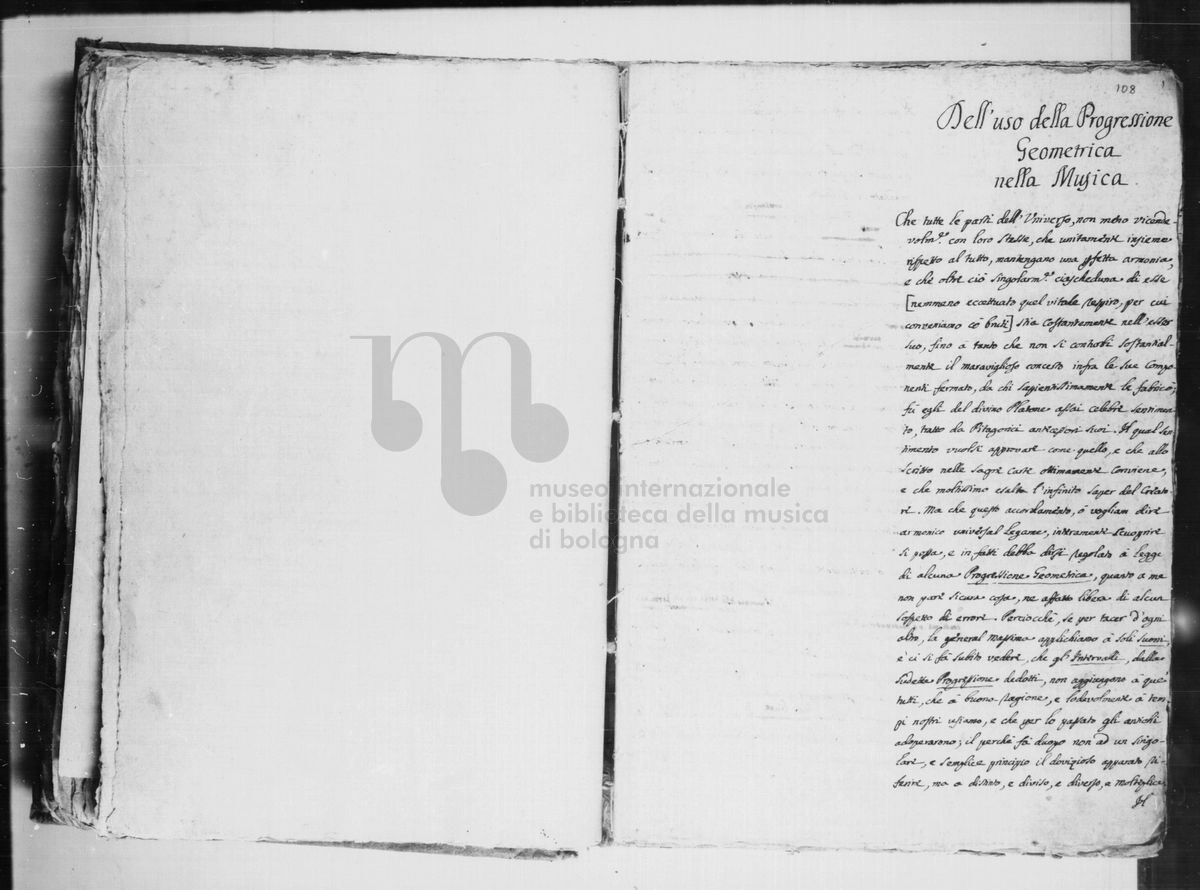 108
Dell'uso della Progressione
Geometrica
nella Musica.
Che tutte le parti dell'Universo, non meno vicende-
volm.te con loro stesse, che unitamente insieme
rispetto al tutto, mantengano una pfetta armonia,
e che oltre ciò singolarm.te ciascheduna di esse
[nemmeno eccettuato quel vitale respiro, per cui
conveniamo cō bruti] stia costantemente nell'esser
suo, fino à tanto che non si conturbi sostantial-
mente il maraviglioso concerto infra le sue Compo-
nenti fermato, da chi sapientissimamente le fabricò;
fù egli del divino Platone assai celebre sentimen-
to, tratto da Pitagorici antecessori suoi. Il qual sen
timento vuolsi approvare come quello, e che allo
scritto nelle sagre carte ottimamente conviene,
e che moltissimo esalta l'infinito saper del Creato
re. Ma che questo accordamēto, ò vogliam dire
armonico universal legame, interamente scuoprire
si possa, e in fatti debba dirsi regolato à legge
di alcuna Progressione Geometrica, quanto a me
non pare sicura cosa, ne affatto libera di alcun
sospetto di errore. Perciocchè, se per tacer d'ogni
altro, la general massima applichiamo à soli suoni,
e' ci si fà subito vedere, che gl'Intervalli, dalla
sudetta Progressione dedotti, non aggiungono a que'
tutti, che à buona ragione, e lodevolmente à tem-
pi nostri usiamo, e che per lo passato gli antichi
adoperarono; il perchè fà duopo non ad un singo-
lare, e semplice principio il dovizioso apparato ri-
ferire, ma a distinto, e diviso, e diverso, e moltiplice.
Il
museo internazionale
e biblioteca della musica
di bologna